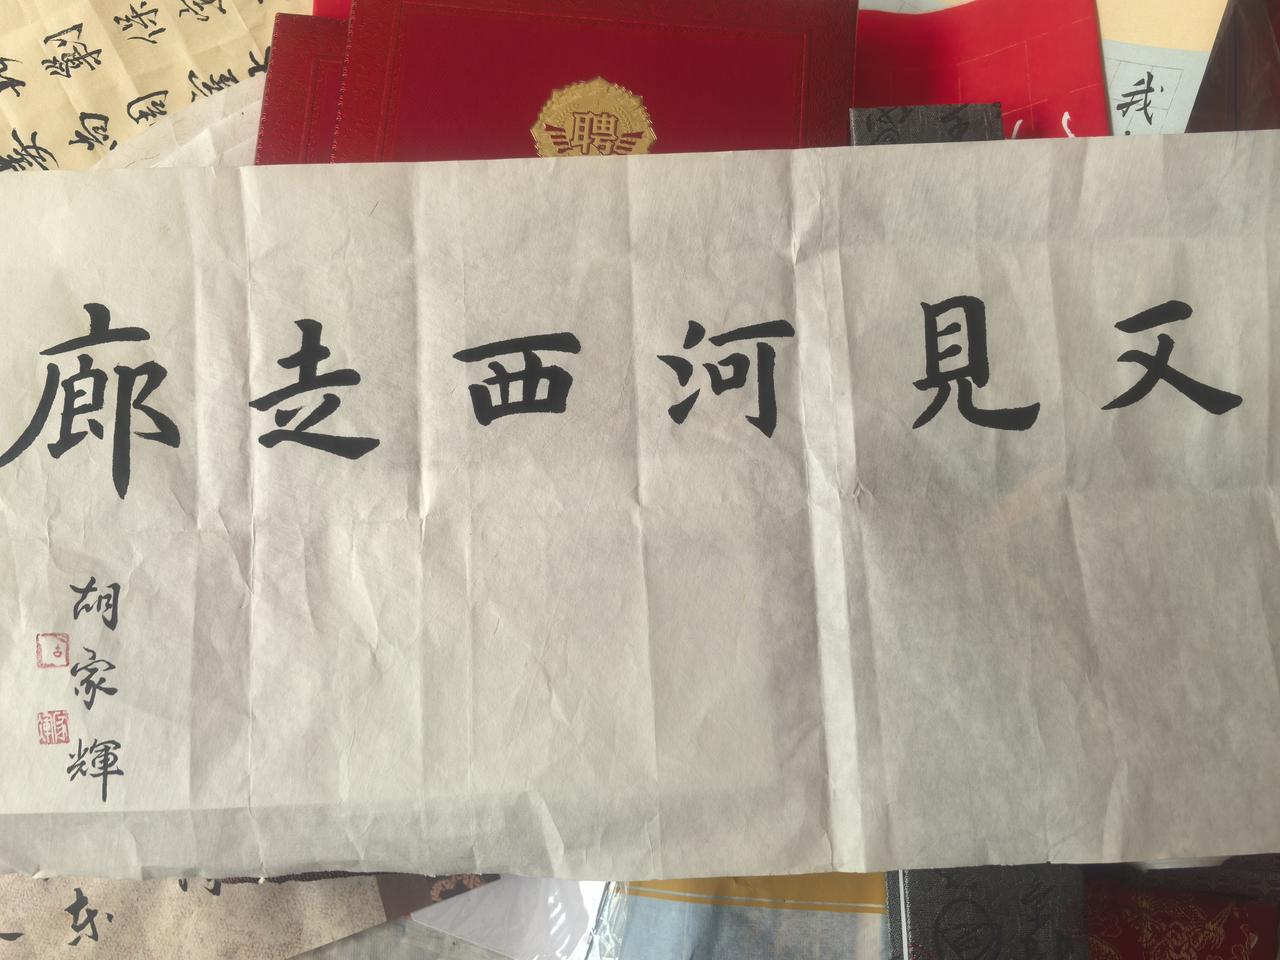 又見河西走廊
胡家輝
聘
我